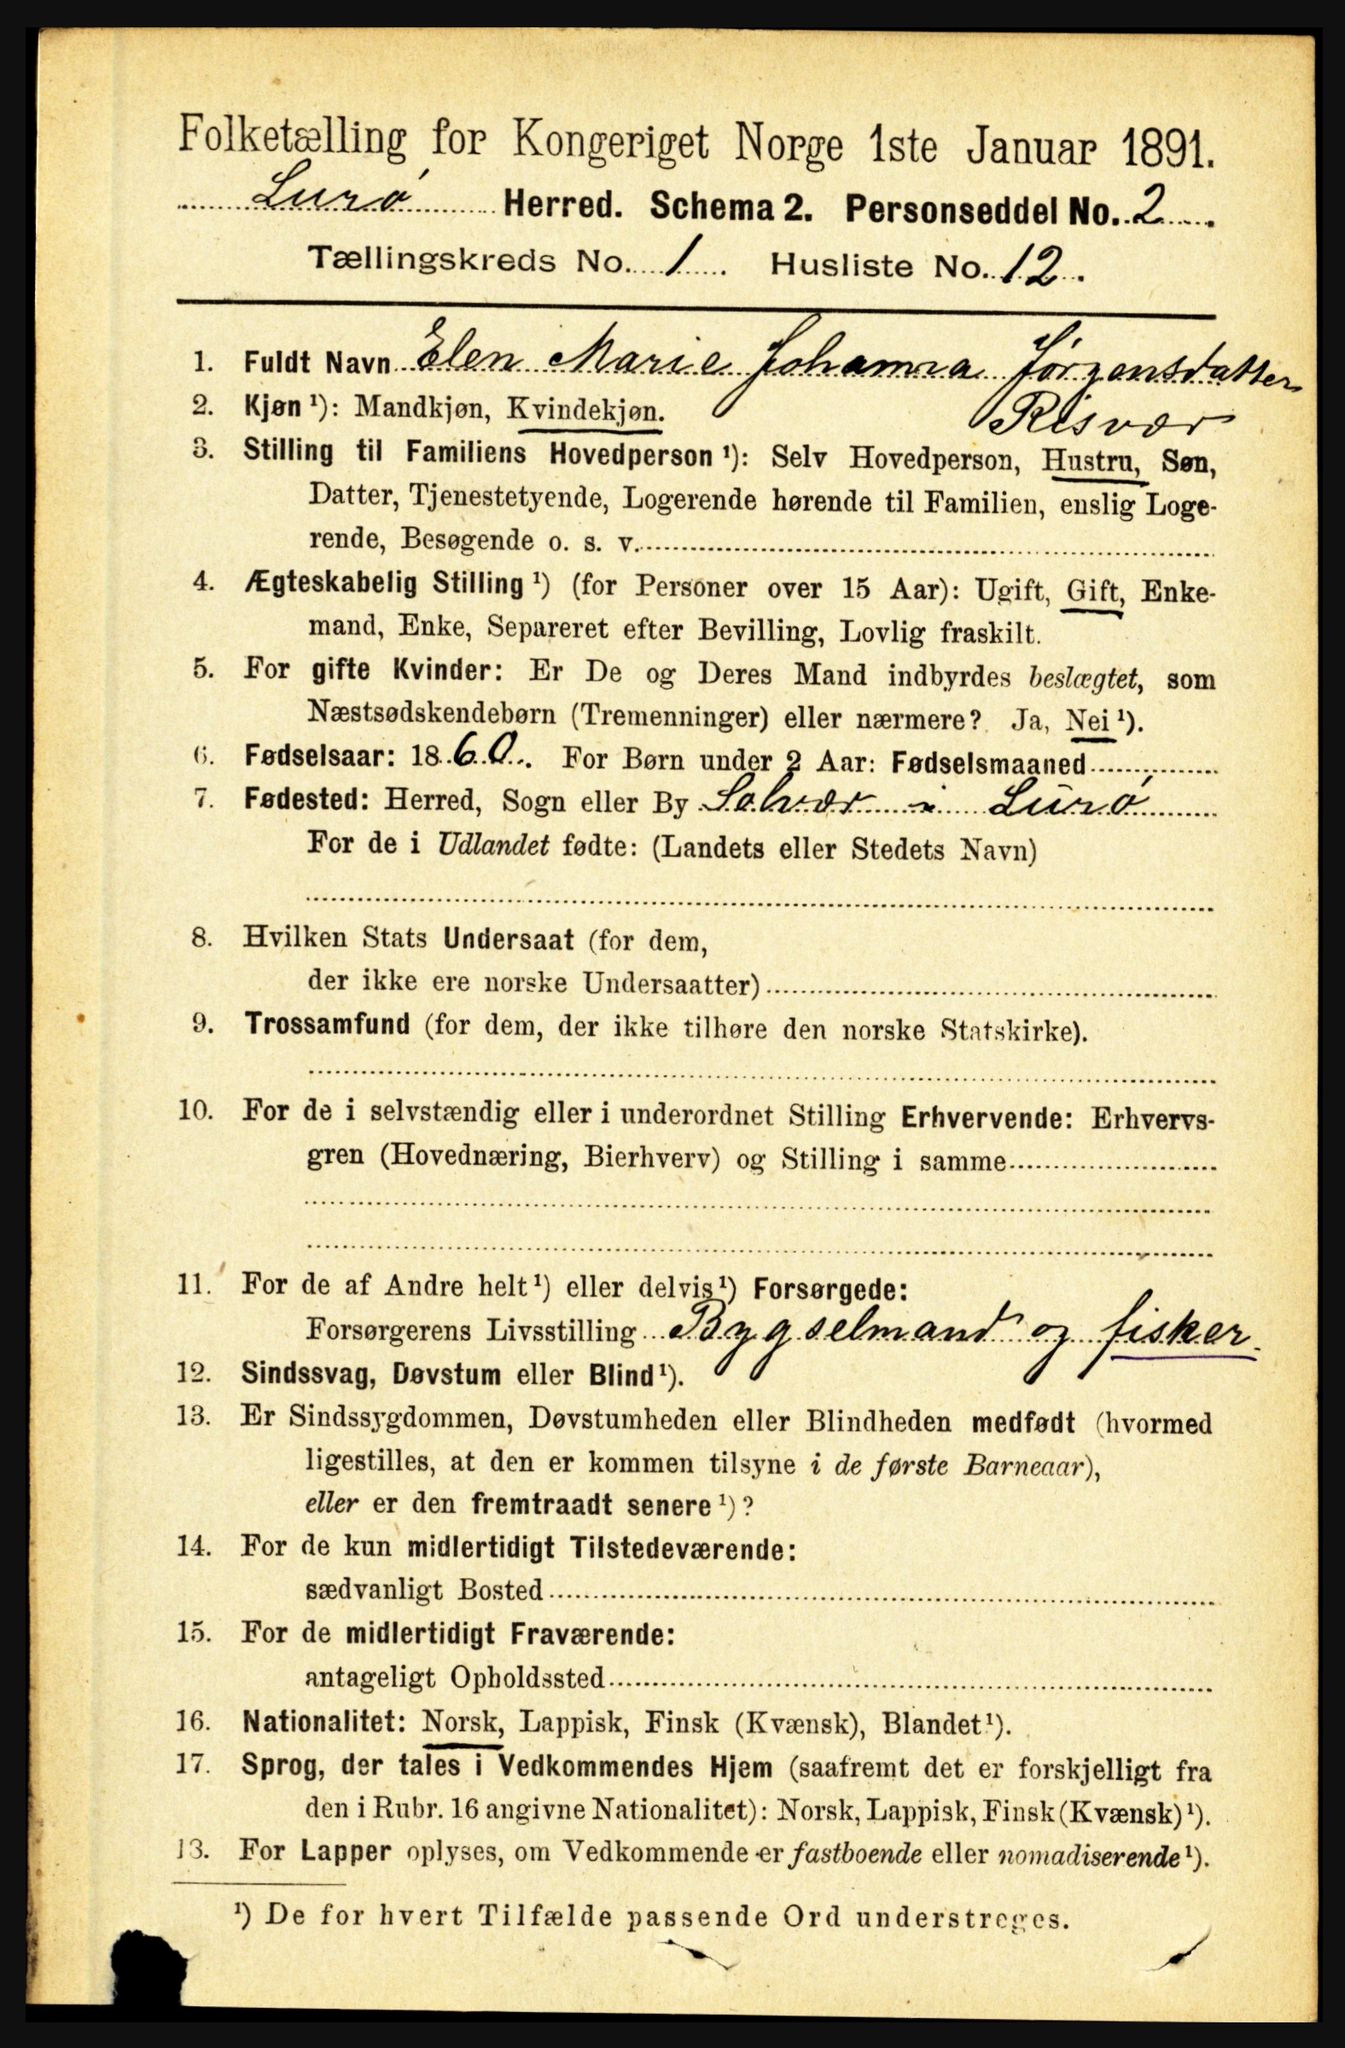 Folketælling for Kongeriget Norge 1ste Januar 1891.
Lurø Herred. Schema 2. Personseddel No. 2
Tællingskreds No. 1 Husliste No. 12.
1. Fuldt Navn Elen Marie Johanna Jørgensdatter
Risvær
2. Kjøn ¹): Mandkjøn, Kvindekjøn.
3. Stilling til Familiens Hovedperson ¹): Selv Hovedperson, Hustru, Søn,
Datter, Tjenestetyende, Logerende hørende til Familien, enslig Loge-
rende, Besøgende o. s. v.
4. Ægteskabelig Stilling ¹) (for Personer over 15 Aar): Ugift, Gift, Enke-
mand, Enke, Separeret efter Bevilling, Lovlig fraskilt.
5. For gifte Kvinder: Er De og Deres Mand indbyrdes beslægtet, som
Næstsødskendebørn (Tremenninger) eller nærmere? Ja, Nei ¹).
6. Fødselsaar: 1860. For Børn under 2 Aar: Fødselsmaaned
7. Fødested: Herred, Sogn eller By Solvær i Lurø
For de i Udlandet fødte: (Landets eller Stedets Navn)
8. Hvilken Stats Undersaat (for dem,
der ikke ere norske Undersaatter)
9. Trossamfund (for dem, der ikke tilhøre den norske Statskirke).
10. For de i selvstændig eller i underordnet Stilling Erhvervende: Erhvervs-
gren (Hovednæring, Bierhverv) og Stilling i samme
11. For de af Andre helt ¹) eller delvis ¹) Forsørgede:
Forsørgerens Livsstilling Bygselmand og fisker.
12. Sindssvag, Døvstum eller Blind ¹).
13. Er Sindssygdommen, Døvstumheden eller Blindheden medfødt (hvormed
ligestilles, at den er kommen tilsyne i de første Barneaar),
eller er den fremtraadt senere ¹)?
14. For de kun midlertidigt Tilstedeværende:
sædvanligt Bosted
15. For de midlertidigt Fraværende:
antageligt Opholdssted
16. Nationalitet: Norsk, Lappisk, Finsk (Kvænsk), Blandet ¹).
17. Sprog, der tales i Vedkommendes Hjem (saafremt det er forskjelligt fra
den i Rubr. 16 angivne Nationalitet): Norsk, Lappisk, Finsk (Kvænsk) ¹).
13. For Lapper oplyses, om Vedkommende er fastboende eller nomadiserende ¹).
¹) De for hvert Tilfælde passende Ord understreges.